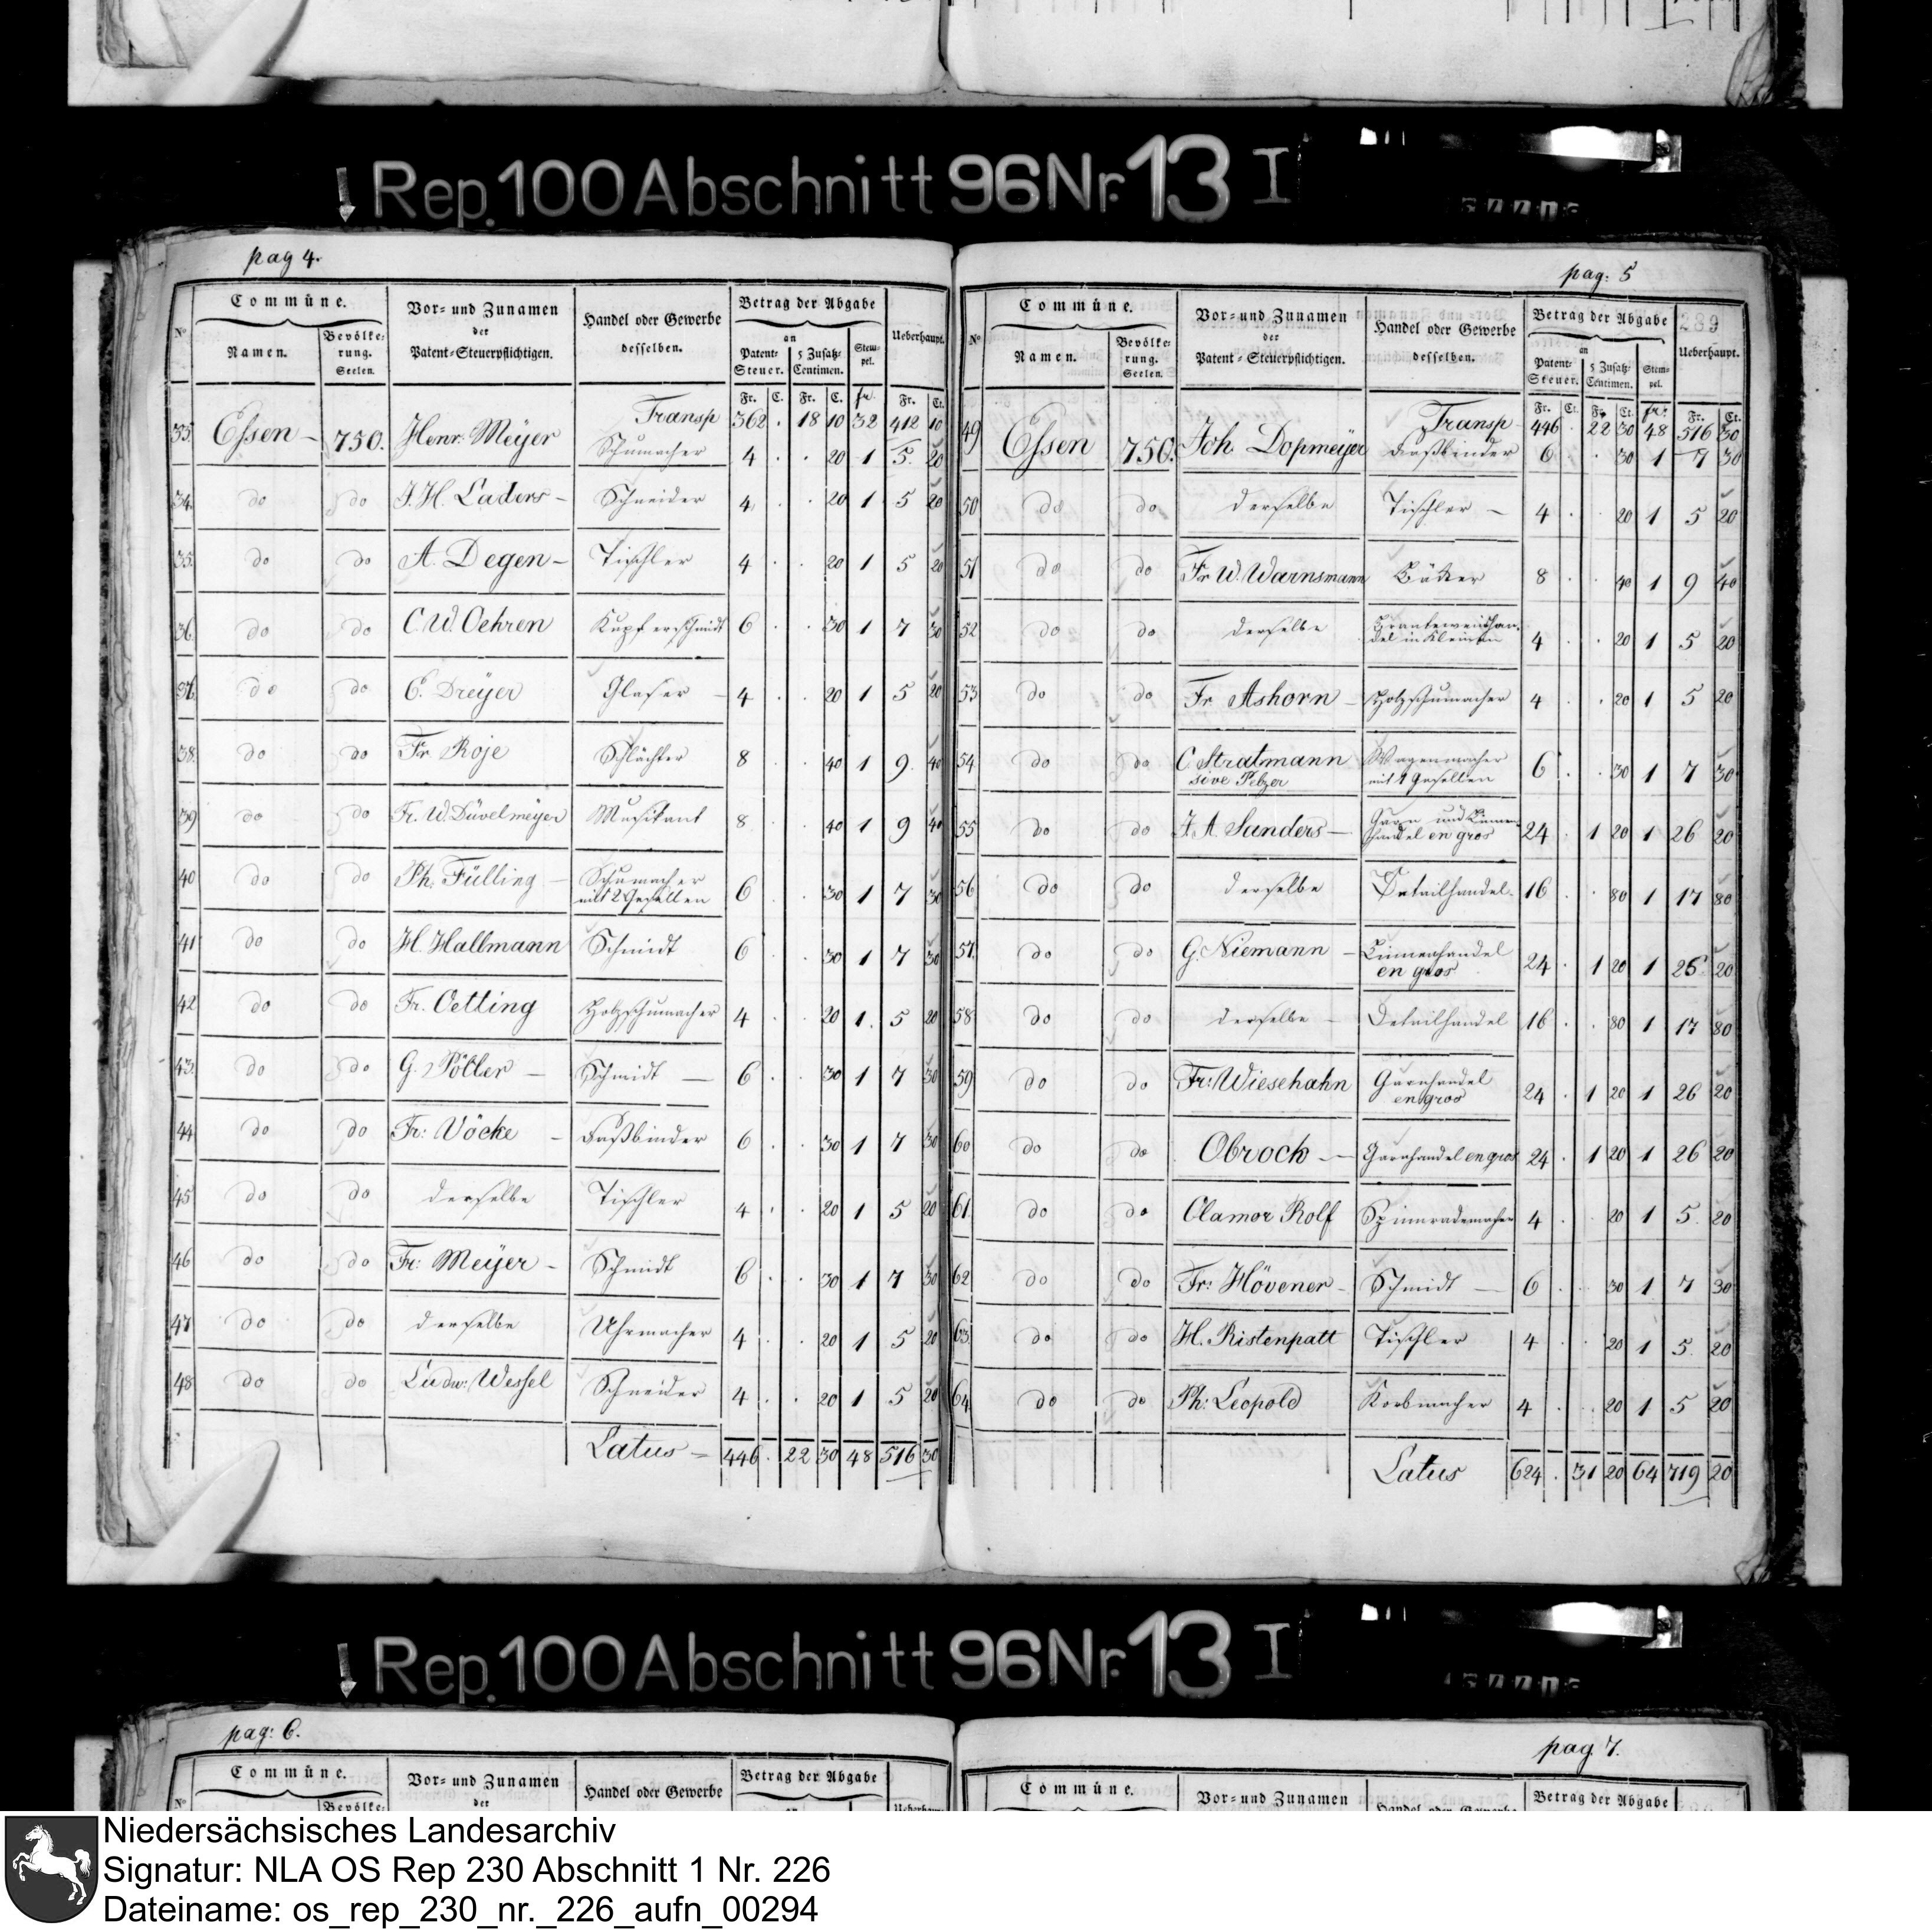 Rep. 100 Abschnitt 96 Nr. 13 I
pag 4.
Commüne. Vor- und Zunamen der Patent-Steuerpflichtigen. Handel oder Gewerbe desselben. Betrag der Abgabe Ueberhaupt.
No Namen. Bevölkerung. Seelen. an Patent-Steuer. 5 Zusatz-Centimen. Stempel.
Fr. C. Fr. C. fr. Fr. Ct.
Transp 362 . 18 10 32 412 10
33. Essen 750. Henr. Meÿer Schumacher 4 . . 20 1 5. 20
34. do do J. H. Laders Schneider 4 . . 20 1 5 20
35. do do A. Degen Tischler 4 . . 20 1 5 20
36. do do C. W. Oehren Kupferschmidt 6 . . 30 1 7 30
37. do do C. Dreÿer Glaser 4 . . 20 1 5 20
38. do do Fr Roje Schlächter 8 . . 40 1 9. 40
39 do do Fr. W. Düvelmeÿer Musikant 8 . . 40 1 9 40
40 do do Ph. Fülling Schumacher mit 2 Gesellen 6 . . 30 1 7 30
41 do do H. Hallmann Schmidt 6 . . 30 1 7 30
42 do do Fr. Oetting Holzschumacher 4 . . 20 1. 5 20
43. do do G. Pötter Schmidt 6 . . 30 1 7 30
44 do do Fr: Vöcke Faßbinder 6 . . 30 1 7 30
45 do do derselbe Tischler 4 . . 20 1 5 20
46 do do Fr: Meÿer Schmidt 6 . . 30 1 7 30
47 do do derselbe Uhrmacher 4 . . 20 1 5 20
48 do do Ludw: Wessel Schneider 4 . . 20 1 5 20
Latus 446 . 22 30 48 516 30
pag: 5
289
Commüne. Vor- und Zunamen der Patent-Steuerpflichtigen. Handel oder Gewerbe desselben. Betrag der Abgabe Ueberhaupt.
No Namen. Bevölkerung. Seelen. an Patent-Steuer. 5 Zusatz-Centimen. Stempel.
Fr. Ct. Fr. Ct. fr. Fr. Ct.
Transp 446 . 22 30 48 516 30
49 Essen 750. Joh. Dopmeÿer Faßbinder 6 . . 30 1 7 30
50 do do derselbe Tischler 4 . . 20 1 5 20
51 do do Fr W. Warnsmann Bäcker 8 . . 40 1 9 40
52 do do derselbe Branteweinhandel in Kleinen 4 . . 20 1 5 20
53 do do Fr Ashorn Holzschumacher 4 . . 20 1 5 20
54 do do C Stratmann sive Pelzer Wagenmacher mit 1 Gesellen 6 . . 30 1 7 30
55 do do J. A. Sanders Garn und Linnenhandel en gros 24 . 1 20 1 26 20
56 do do derselbe Detailhandel 16 . . 80 1 17 80
57. do do G. Niemann Linnenhandel en gros 24 . 1 20 1 26 20
58 do do derselbe Detailhandel 16 . . 80 1 17 80
59 do do Fr: Wiesehahn Garnhandel en gros 24 . 1 20 1 26 20
60 do do Obrock Garnhandel en gros 24 . 1 20 1 26 20
61. do do Clamor Rolf Spinnrademacher 4 . . 20 1 5. 20
62 do do Fr: Hövener Schmidt 6 . . 30 1 7 30
63. do do H. Ristenpatt Tischler 4 . . 20 1 5. 20
64 do do Ph: Leopold Korbmacher 4 . . 20 1 5 20
Latus 624 . 31 20 64 719 20
Rep. 100 Abschnitt 96 Nr. 13 I
pag: 6.
Commüne. Vor- und Zunamen der Handel oder Gewerbe Betrag der Abgabe
No
pag. 7.
Commüne. Vor- und Zunamen Betrag der Abgabe
Niedersächsisches Landesarchiv
Signatur: NLA OS Rep 230 Abschnitt 1 Nr. 226
Dateiname: os_rep_230_nr._226_aufn_00294